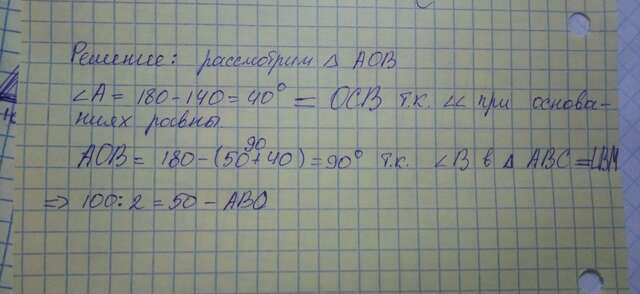 Решение: рассмотрим Δ AOB
∠A = 180-140=40° = OCB т.к. ∠∠ при основа-
ниях равны.
90
AOB = 180-(50+40)=90° т.к. ∠B в Δ ABC =
⇒ 100:2=50 - ABO